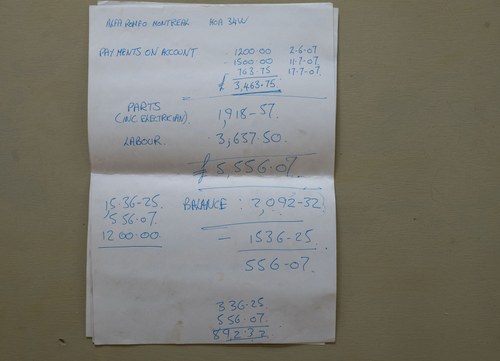 ALFA ROMEO MONTREAL HOA 34W
PAYMENTS ON ACCOUNT 1200·00 2·6·07
1500·00 11·7·07
763·75 17·7·07
£ 3,463·75
PARTS 1,918-57.
(INC. ELECTRICIAN)
LABOUR. 3,637.50.
£ 5,556·07
1,536-25. BALANCE : 2,092-32
556.07
1200.00 - 1536-25
556-07.
336·25
556.07.
892·32